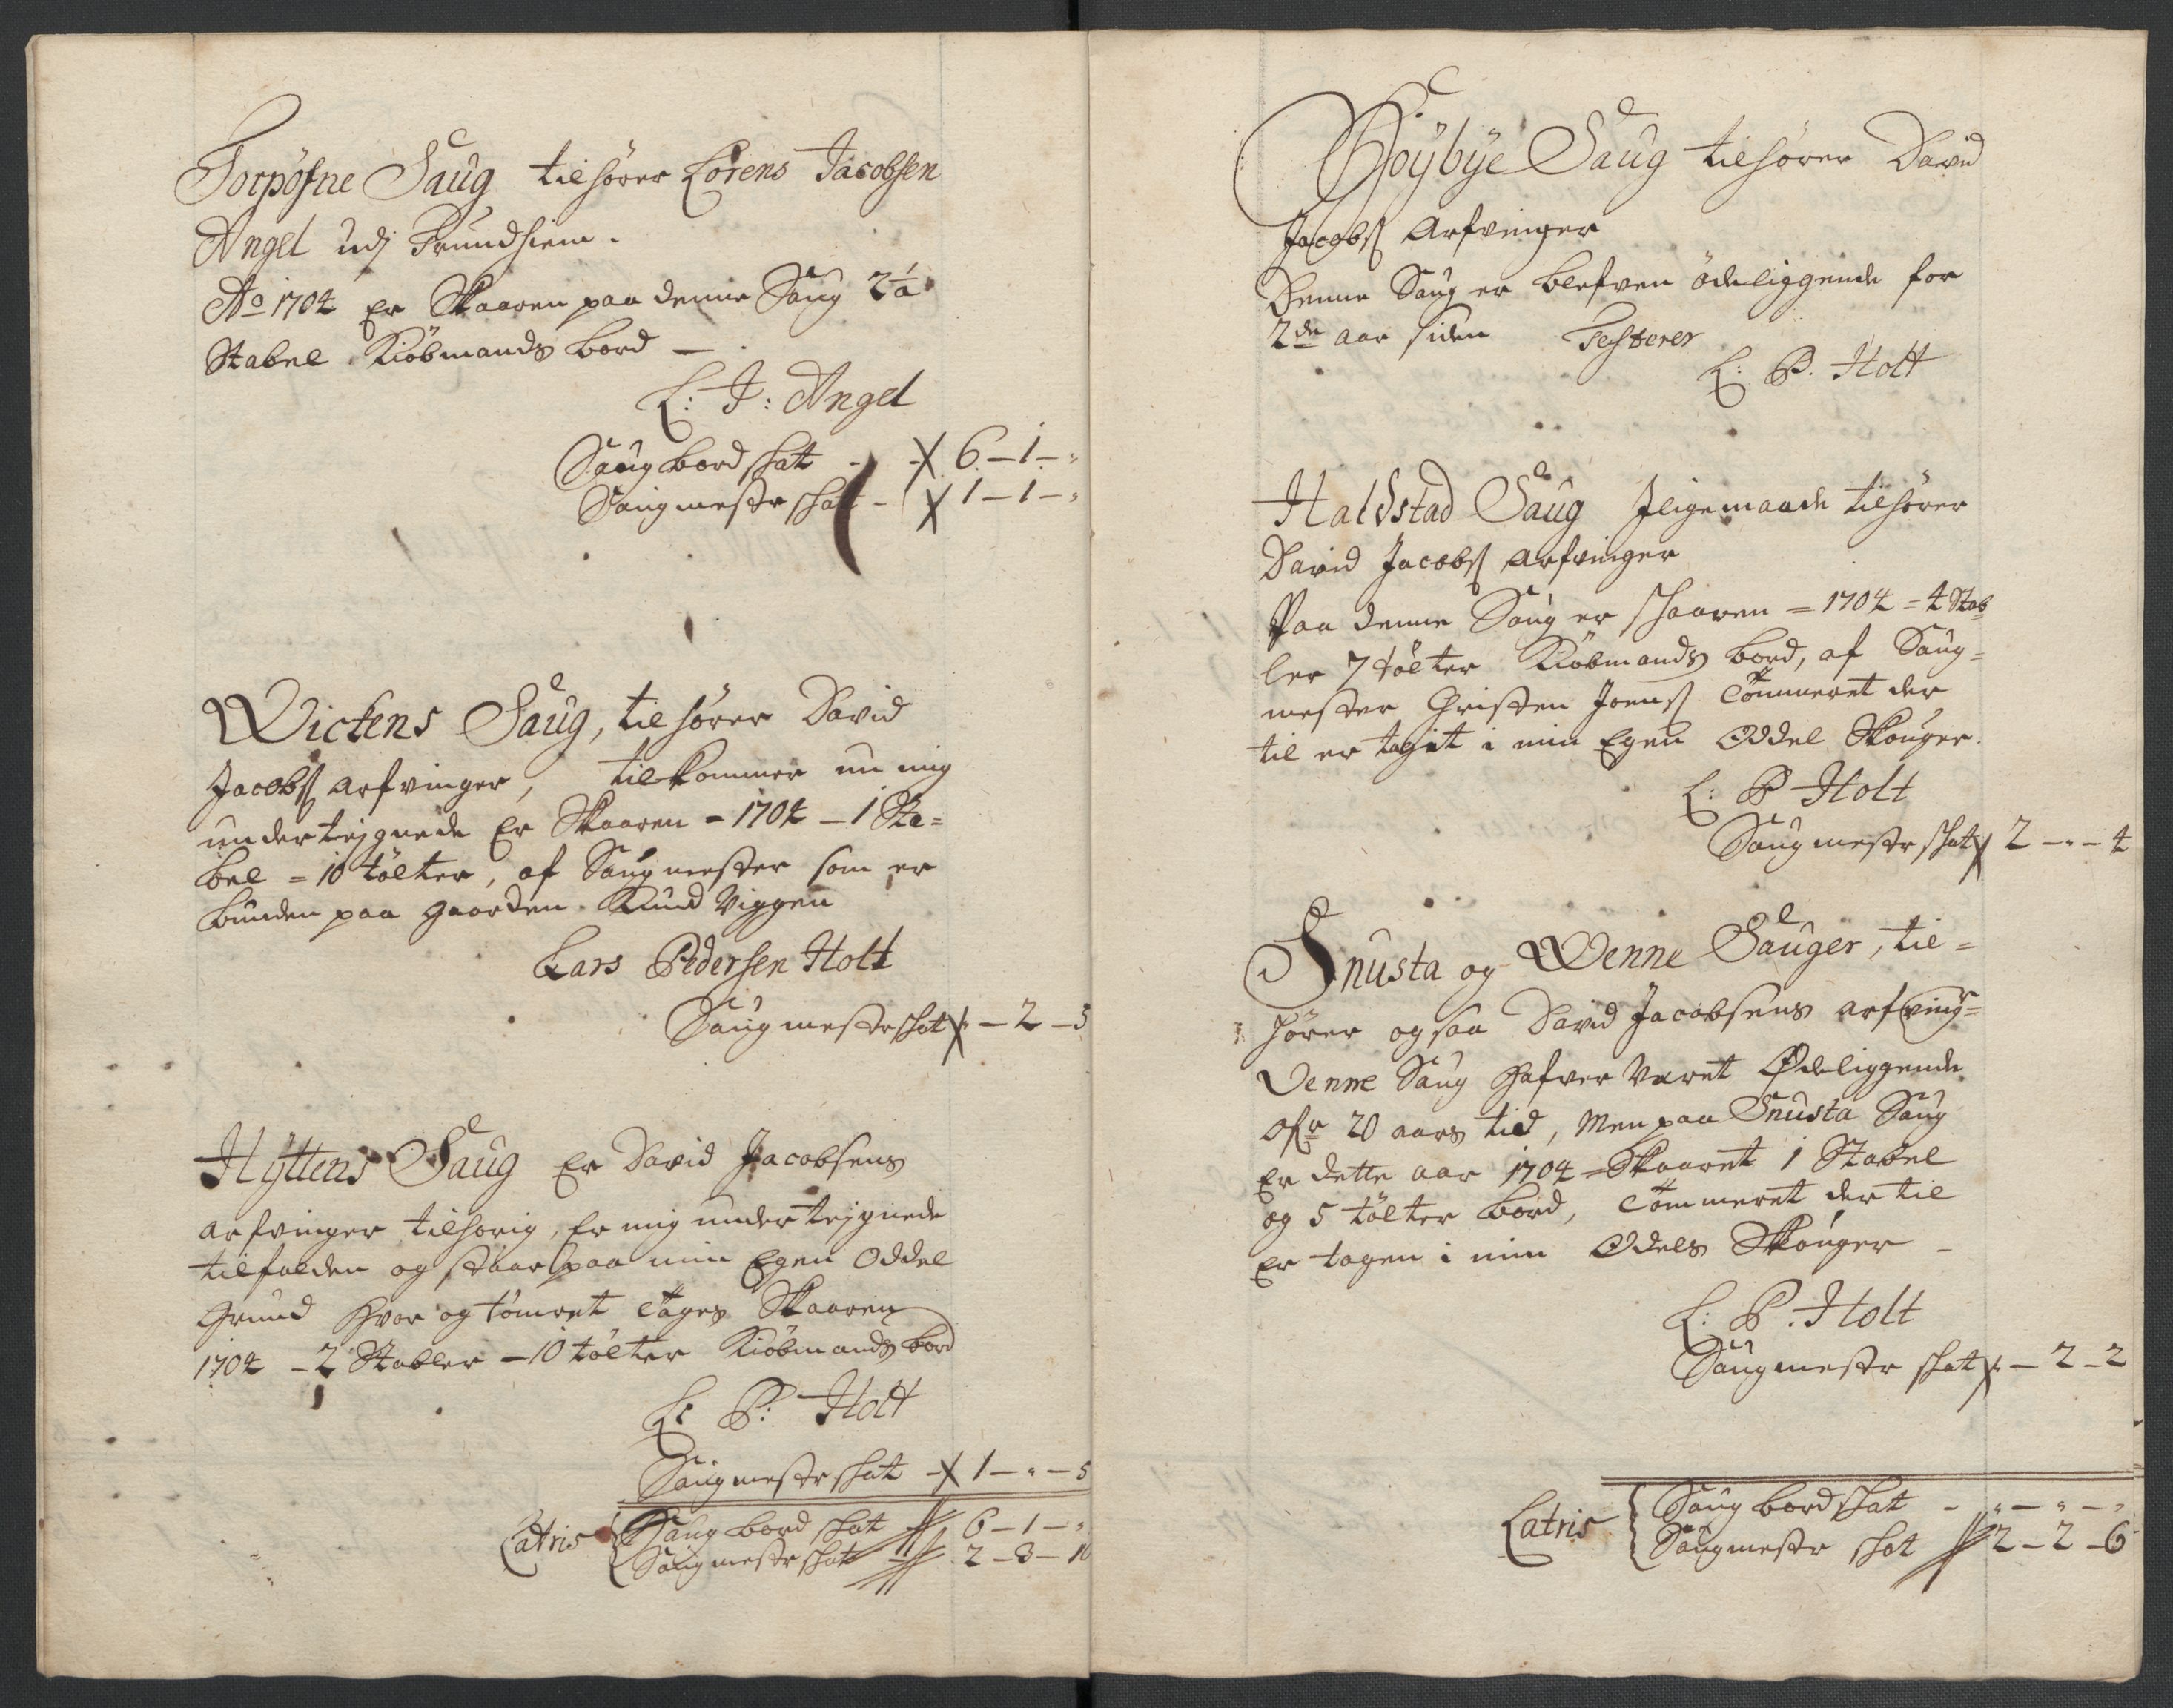 Torpøfne Saug tilhører Lorens Jacobsen
Angel udj Trundhiem.
Ao 1704 Er Skaaren paa denne Saug 2½
Stabel Kiöbmands bord —
L: J: Angel
Saugbord skat - 6 – 1 – "
Saugmestr skat - 1 – 1 – "
Wictens Saug, tilhører David
Jacobs arfvinger, tilkommer nu mig
undertejgnede Er Skaaren – 1704 – 1 Sta=
bel = 10 tölter, af Saugmester som er
bunden paa gaarden Knud Viggen
Lars Pedersen Holt
Saugmestr skat " – 2 – 5
Hÿttens Saug Er David Jacobsens
arfvinger tilhørig, Er mig undertejgnede
tilfalden og staar paa min Egen Oddel
Grund hvor og tömret tages Skaaren
1704 – 2 Stabler – 10 tölter Kiöbmands bord
L: P: Holt
Saugmestr skat - 1 – " – 5
Latris Saugbord skat 6 – 1 – "
Saugmestr skat 2 – 3 – 10
Höÿbÿe Saug tilhører David
Jacobs Arfvinger
Denne Saug er blefven ödeliggende for
2de aar siden Testerer
L: P. Holt
Haldstad Saug Jligemaade tilhører
David Jacobs Arfvinger
Paa denne Saug er skaaren = 1704 = 4 Stab
ler 7 tölter Kiöbmands bord, af Saug=
mester Christen Joens Tömmeret der
til er tagit i min Egen Oddel Skouger.
L: P Holt
Saugmestr skat 2 – " – 4
Snusta og Wenne Sauger, til=
hører og saa David Jacobsens arfving=
Venne Saug hafver Været Ödeliggende
ofr 20 aars tid, Men paa Snusta Saug
Er dette aar 1704 = Skaaret 1 Stabel
og 5 tölter bord, Tömmeret der til
Er tagen i min Odels Skouger –
L: P. Holt
Saugmestr skat " – 2 – 2
Latris Saugbord skat - " – " – "
Saugmestr skat 2 – 2 – 6